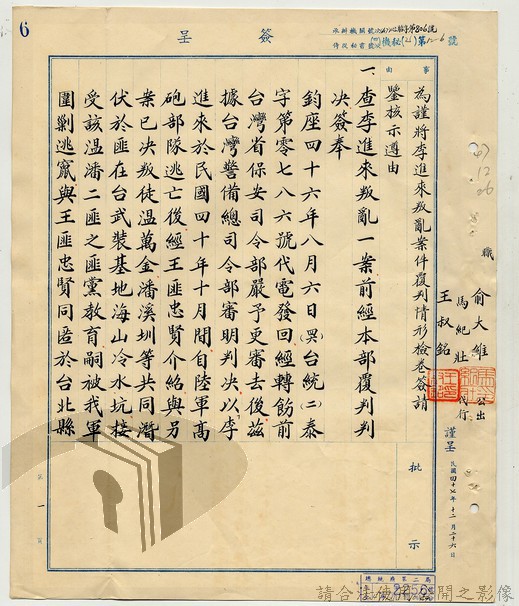 6
簽呈
機秘(乙)第12-6號
事由
為謹將李進來叛亂案件覆判情形檢卷簽請
鑒核示遵由
一、查李進來叛亂一案前經本部覆判判
決簽奉
鈞座四十六年八月六日(哭)台統(二)泰
字第零七八六號代電發回經轉飭前
台灣省保安司令部嚴予更審去後茲
據台灣警備總司令部審明判決以李
進來於民國四十年十月間自陸軍高
砲部隊逃亡後經王匪忠賢介紹與另
案已決叛徒溫萬金潘溪圳等共同潛
伏於匪在台武裝基地海山冷水坑接
受該溫潘二匪之匪黨教育嗣被我軍
圍剿逃竄與王匪忠賢同匿於台北縣
職
俞大維 公出
馬紀壯 代行
王叔銘
謹呈
民國四十七年十二月二十六日
47
12
26
批示
第一頁
總統府第二局
請合法使用公開之影像